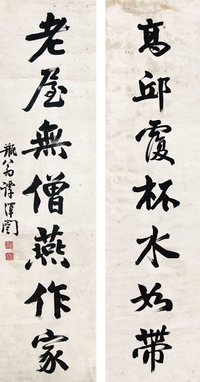 高邱覆杯水如帶
老屋無僧燕作家
瓶翁譚澤闓